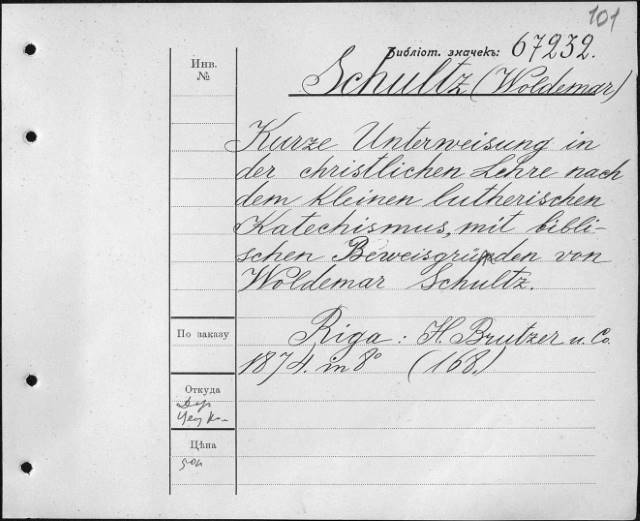 101
Библіот. значекъ: 67232.
Инв.
№
Schultz (Woldemar)
Kurze Unterweisung in
der christlichen Lehre nach
dem kleinen lutherischen
Katechismus, mit bibli-
schen Beweisgründen von
Woldemar Schultz.
По заказу
Riga: H. Brutzer u. Co.
1874. in 8° (168.)
Откуда
Цѣна